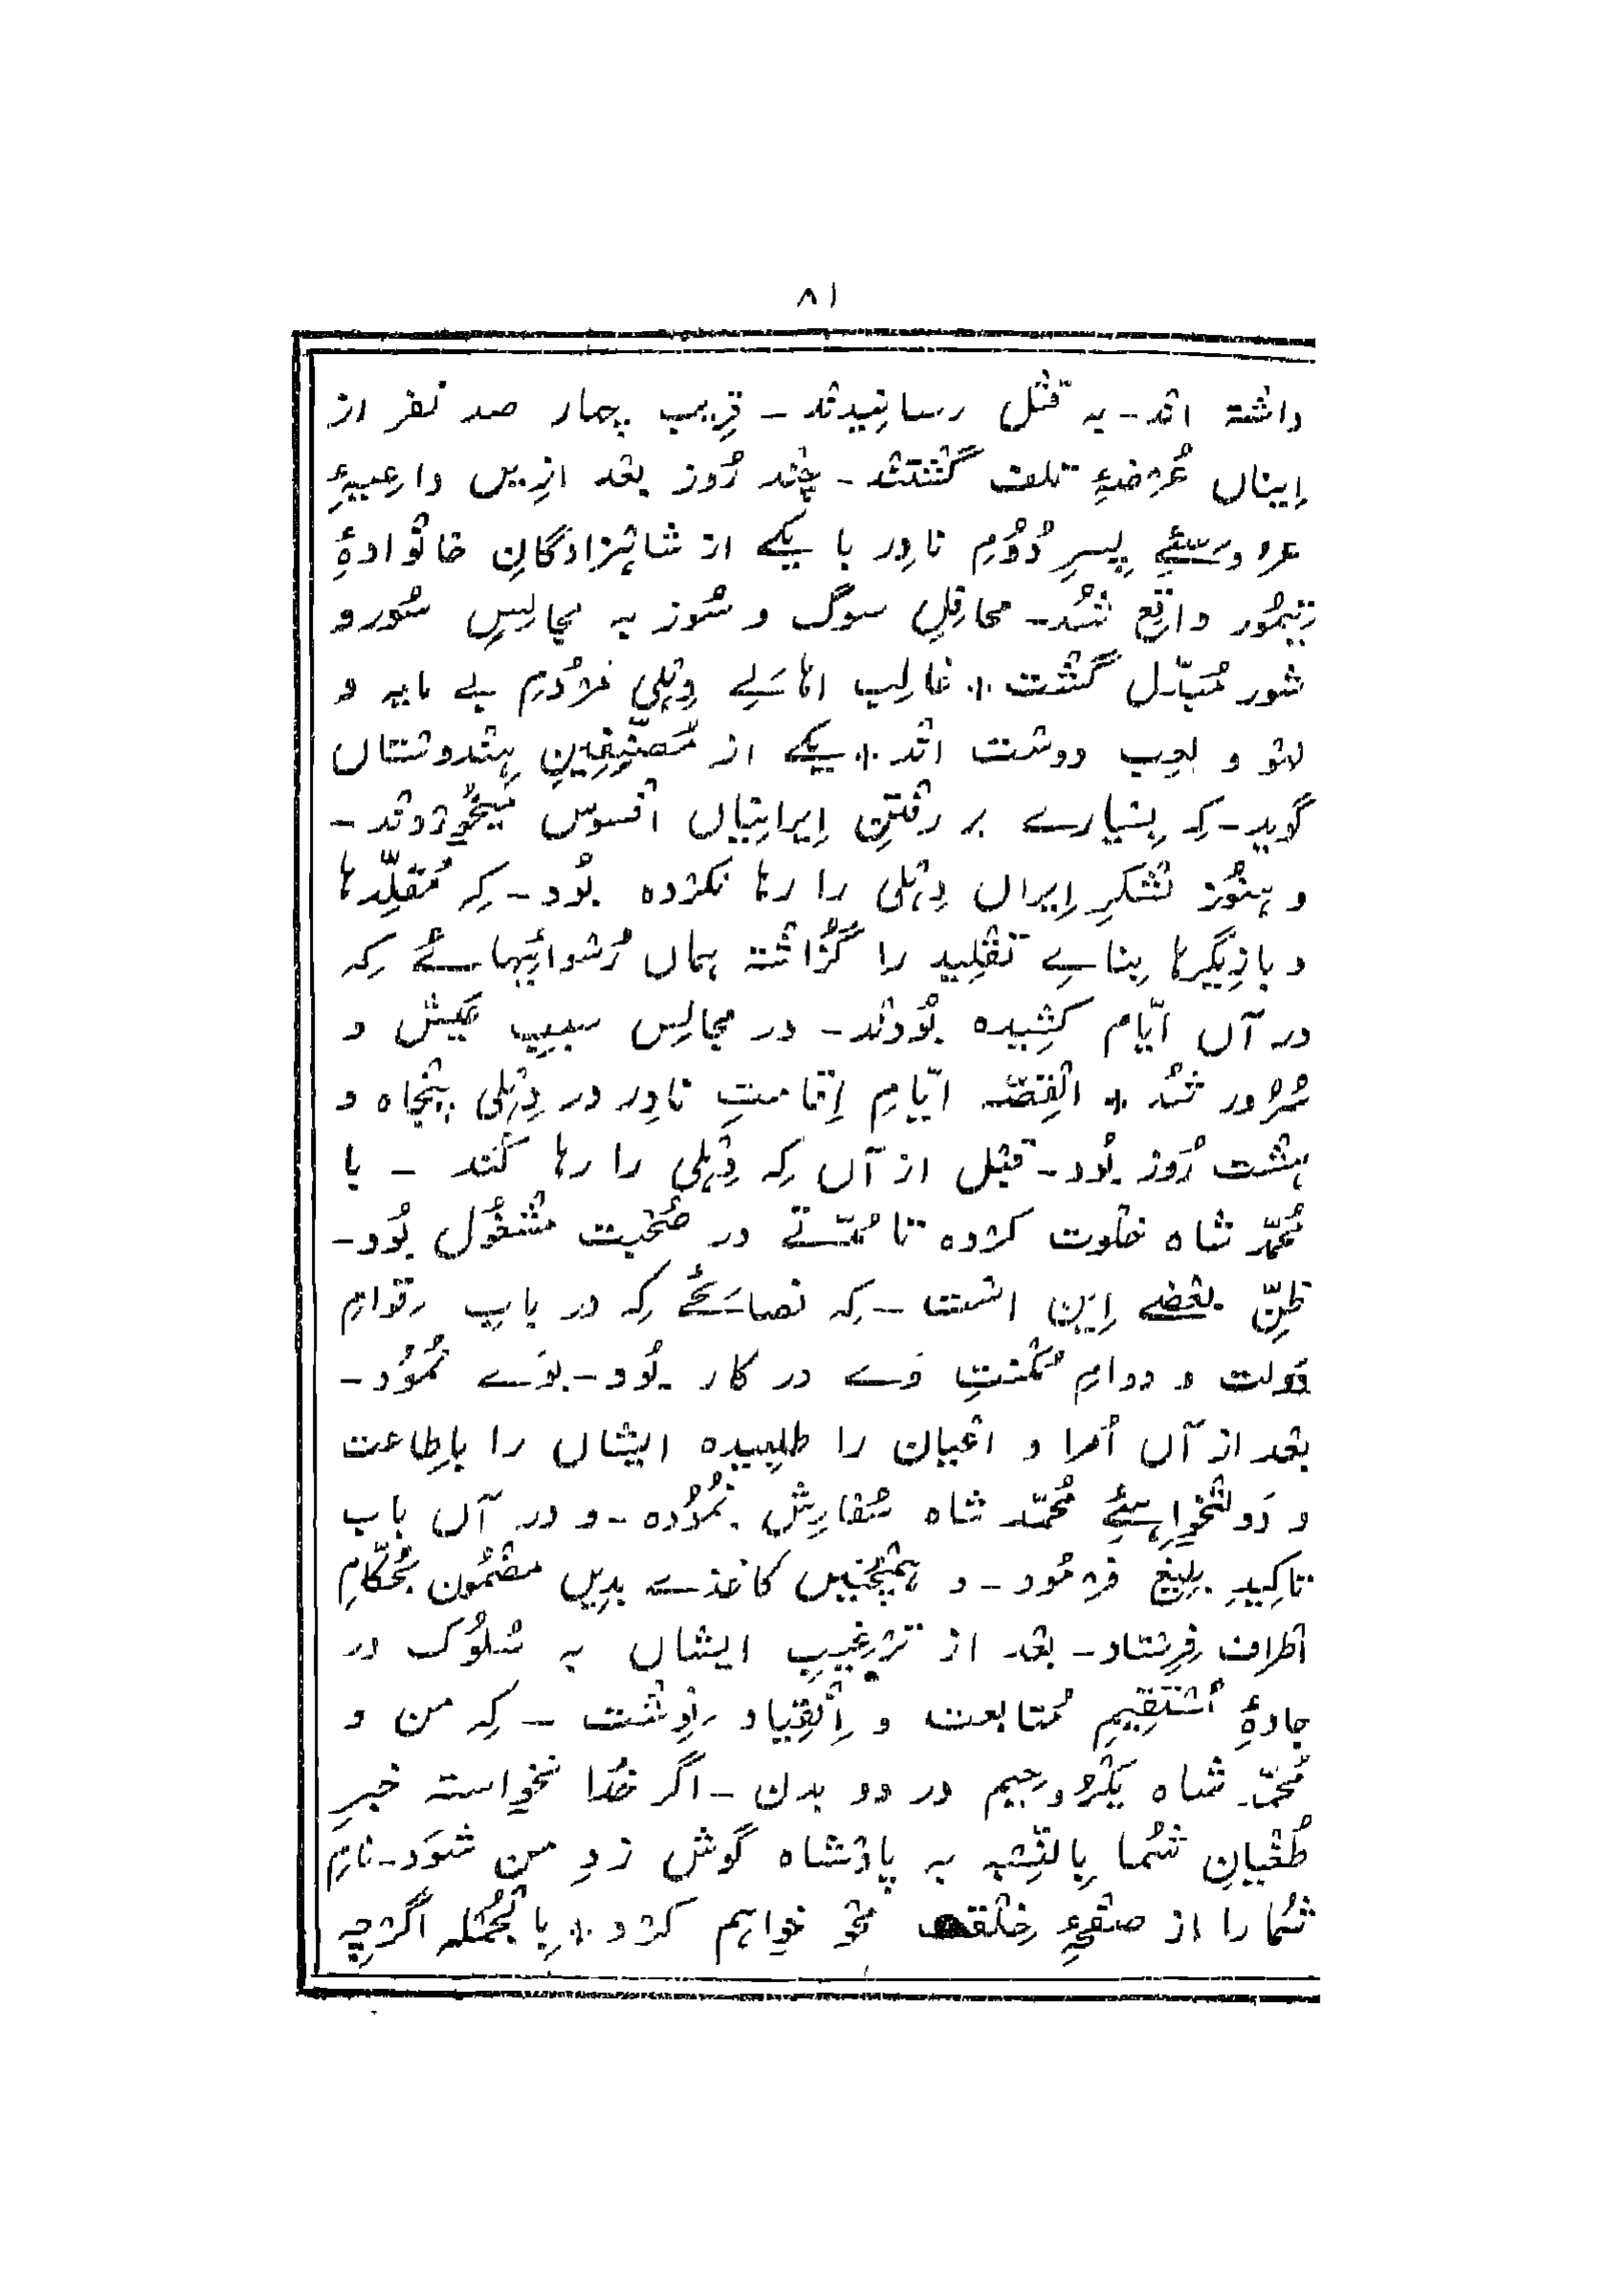 ۸۱
داشته اند - به قتل رسانیدند - قریب چهار صد نفر از
اینان عُرضهٔ تلف گشتند - چند رُوز بعد ازیں داعیهٔ
عروسیٔ پسرِ دُوُمِ نادِر با یکے از شاہزادگانِ خانوادهٔ
تیمُور واقع شُد - محافلِ سوگ و سُوز به مجالِسِ سُور و
شور مُبدّل گشت * غالِب اہالیٔ دِہلی مردُمِ بے مایه و
لہو و لعِب دوست اند * یکے از مُصنّفینِ ہندوستاں
گوید - کِه بسیارے بر رفتنِ ایرانیاں افسوس میخُوردند -
و ہنُوز لشکرِ ایراں دِہلی را رہا نکرده بُود - کِه مُقلّدہا
و بازیگرہا بِناے تقلید را گُزاشته ہماں رُسوائیہائے کِه
در آں ایّام کشیده بُودند - در مجالِس سببِ عیش و
سُرُور شُد * القِصّه ایّامِ اِقامتِ نادِر در دِہلی پنجاه و
ہشت رُوز بُود - قبل از آں کِه دِہلی را رہا کُند - با
مُحمّد شاه خلوت کرده تا مُدّتے در صُحبت مشغُول بُود -
ظنِّ بعضے ایں است - کِه نصائحے کِه در بابِ قوامِ
دولت و دوامِ مُکنتِ وَے در کار بُود - بوَے نمُود -
بعد از آں اُمرا و اعیان را طلبیده ایشاں را باطاعت
و دَولتخواہیٔ مُحمّد شاه سُفارش نمُوده - و در آں باب
تاکیدِ بلیغ فرمُود - و ہمچنیں کاغذے بدیں مضمُون بحُکّامِ
اطراف فِرستاد - بعد از ترغیبِ ایشاں به سُلُوک در
جادهٔ مُستقیمِ مُتابعت و اِنقیاد نوِشت - کِه من و
مُحمّد شاه یکرُوحیم در دو بدن - اگر خُدا نخواسته خبرِ
طُغیانِ شُما بِالنّسبه به پادشاه گوش زدِ من شوَد - نامِ
شُما را از صفحهٔ خِلقت محو خواہم کرد * بِالجُمله اگرچه